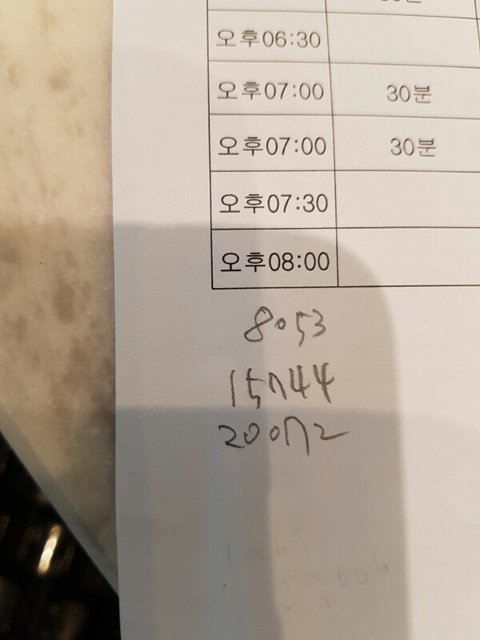 오후06:30
오후07:00 30분
오후07:00 30분
오후07:30
오후08:00
8053
15744
20072